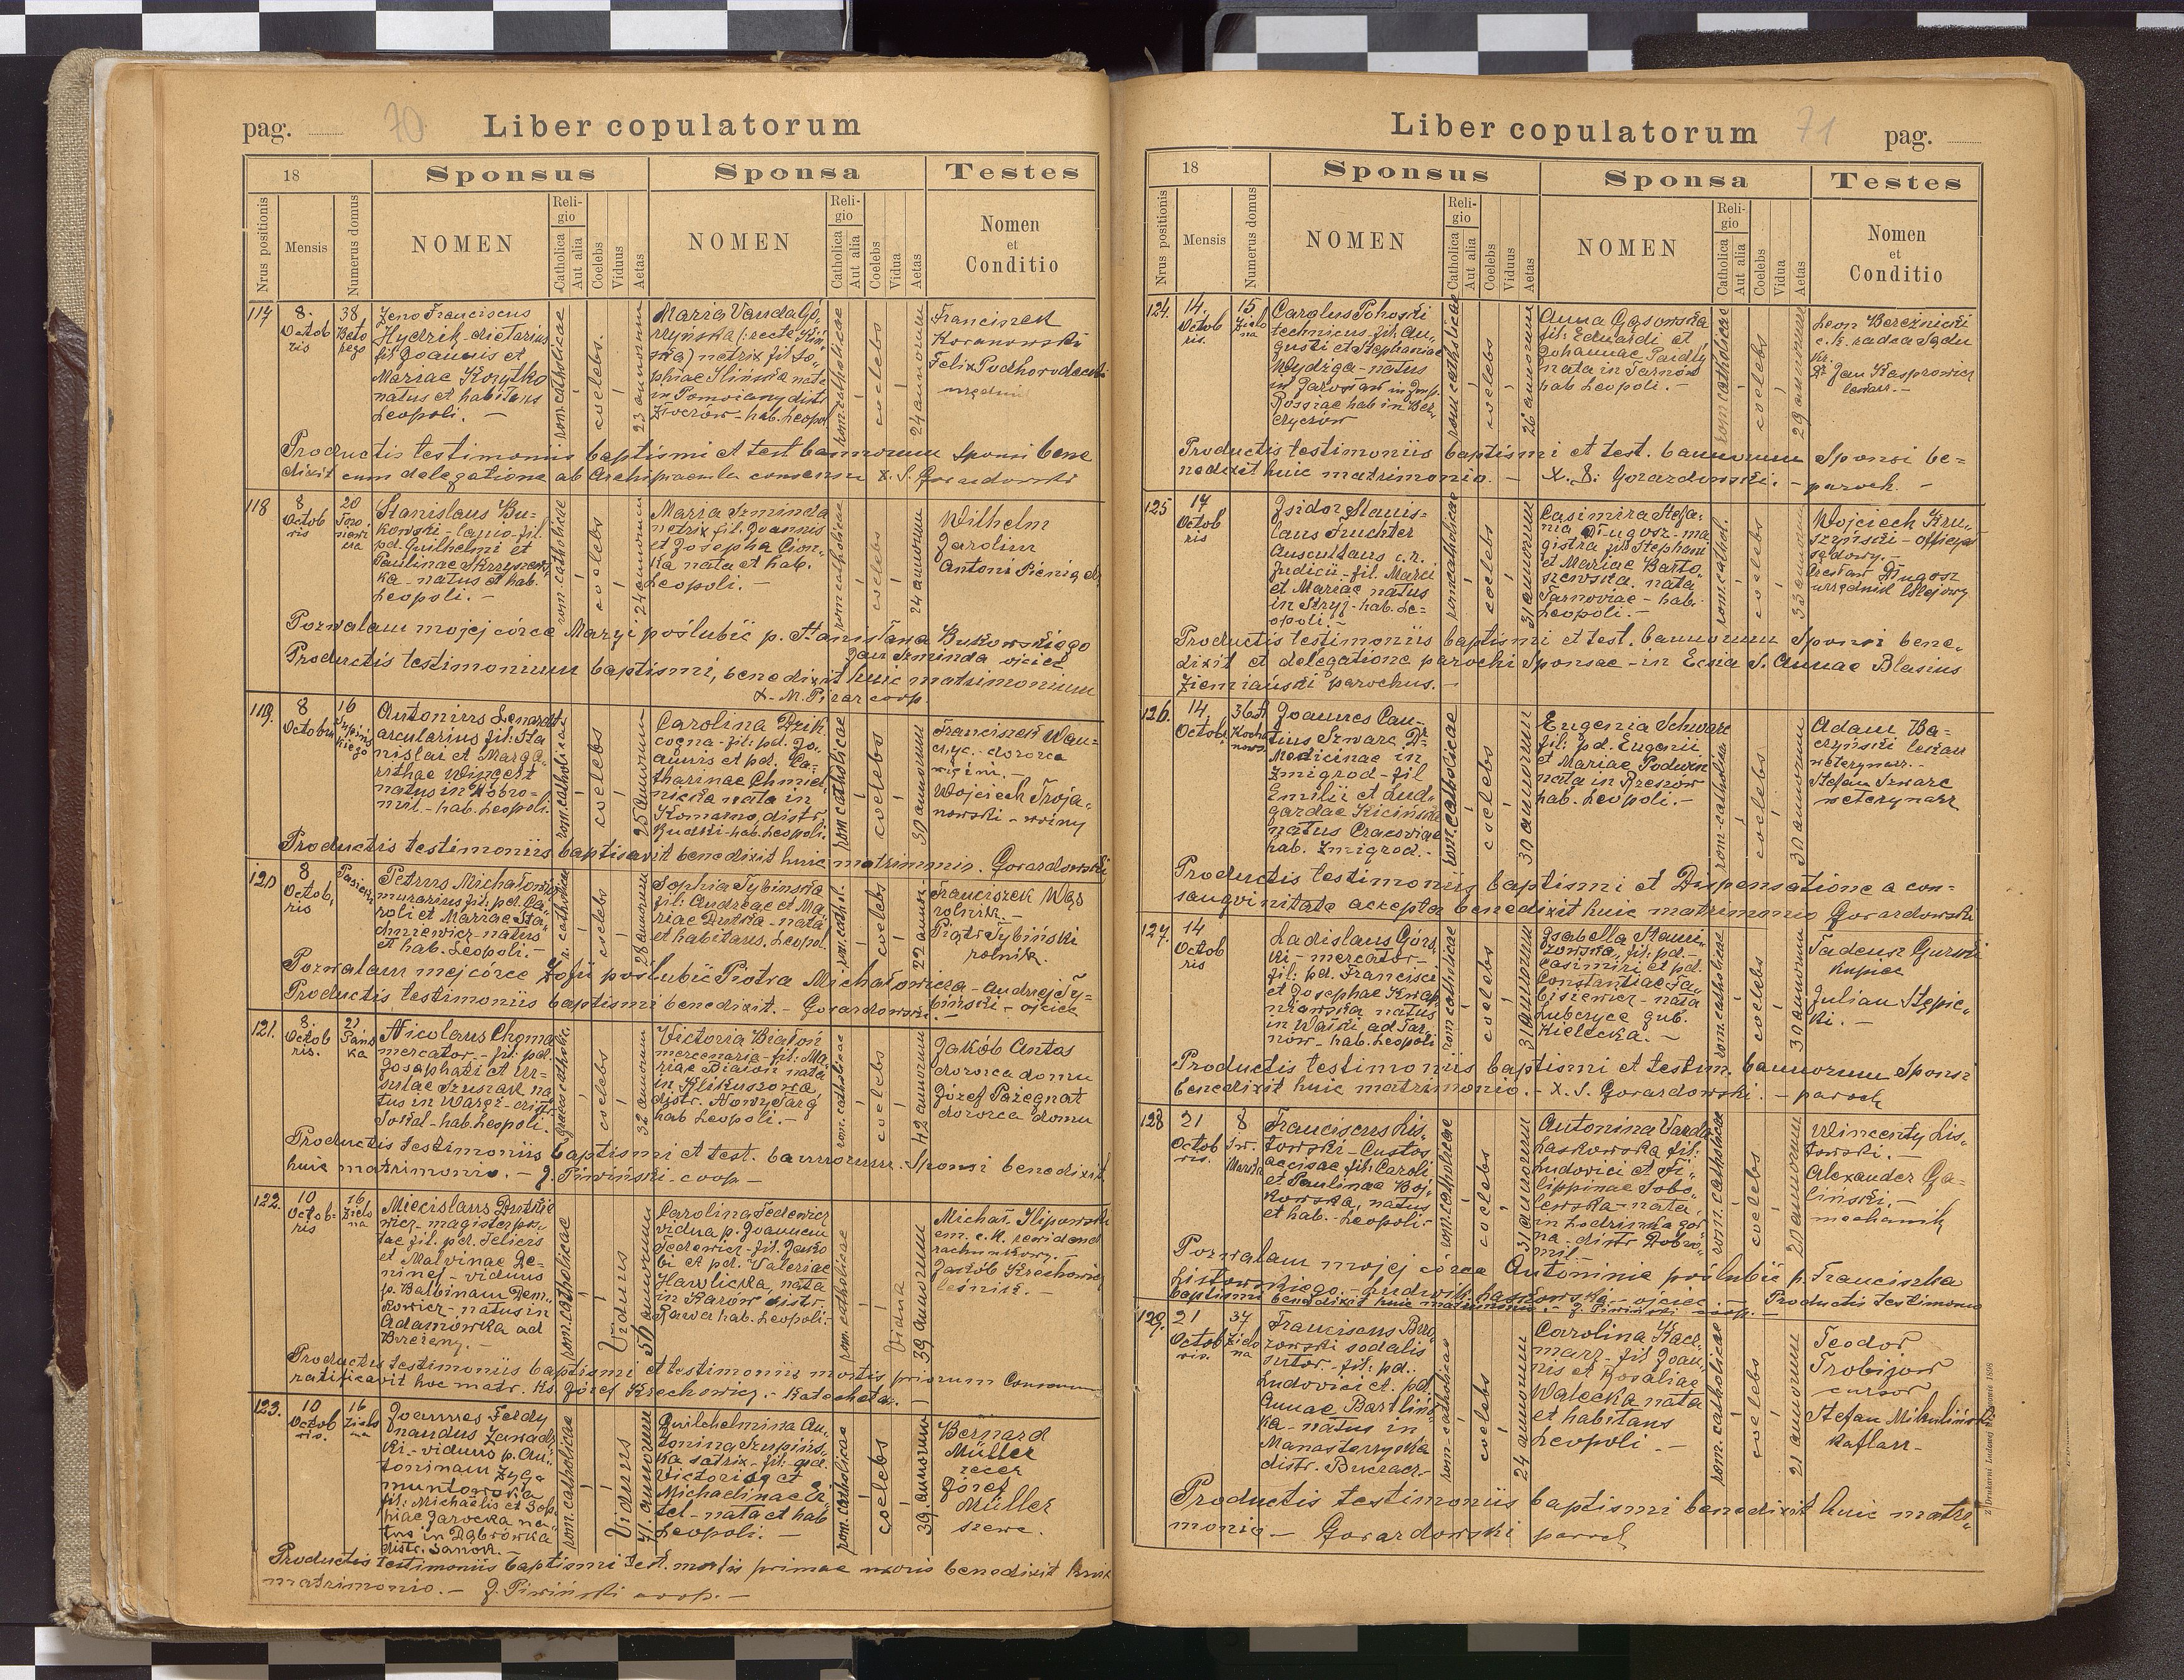 pag. 70 Liber copulatorum
18 Sponsus Sponsa Testes
Nrus positionis Mensis Numerus domus NOMEN Religio Catholica Aut alia Coelebs Viduus Aetas NOMEN Religio Catholica Aut alia Coelebs Vidua Aetas Nomen et Conditio
117 8. Octobris 38
Zeno Franciscus
Hydzik dietarius
fil. Joannis et
Mariae Korytko
natus et habitans
Leopoli. —
rom. catholicae
coelebs.
23 annorum
Maria Vanda Gó-
phiae Ilińska nata
in Pomorzany distr.
Złoczów - hab. Leopol
rom. catholicae
coelebs
24 annorum
Franciszek
Koranowski
Felix Podhorodecki
Productis testimoniis baptismi et test bannorum Sponsi bene
dixit cum delegatione ab Archi consensu X. S. Gorazdowski
118 8 Octobris 20
Stanislaus Bu-
kowski - lanio - fil.
pd. Guilhelmi et
Paulinae Skrzyszew-
ka - natus et hab.
Leopoli. —
rom. catholicae
coelebs
24 annorum
Maria Szminda
netrix fil. Joannis
et Josepha Cion-
ka nata et hab.
Leopoli. —
rom. catholicae
coelebs
24 annorum
Wilhelm
Jarolim
Antoni
Pozwalam mojej córce Maryi poślubić p. Stanisława Bukowskiego
Jan Szminda ojciec
Productis testimonium baptismi, benedixit huic matrimonium
X. M. Pirar coop.
119. 8 Octobris 16
Antonius Lenardt
arcularius fil. Sta
nislai et Marga-
rithae Wingert
natus in Dobro-
mil. - hab. Leopoli.
rom. catholicae
coelebs
25 annorum
Carolina Dzik
cocna - fil. pd. Jo-
annis et pd. Ca-
tharinae Chmiel
nicka nata in
Komarno, distr.
Rudki - hab. Leopoli.
rom. catholicae
coelebs
30 annorum
Franciszek Wan-
czyc. dozorca
więzni. —
Wojciech Troja-
nowski - woźny
Productis testimoniis baptisavit benedixit huic matrimonio. Gorazdowski
120 8 Octobris
Petrus Michałowicz
murarius fil. pd. Ca-
roli et Mariae Sta-
chniewicz - natus
et hab. Leopoli. —
r. catholicae
coelebs
28 annorum
Sophia Tybińska
fil. Andreae et Ma-
riae Dutka - nata
et habitans. Leopol.
rom. cathol.
coelebs
22 annor.
Franciszek Wąs
rolnik. —
Piotr Tybiński
rolnik.
Pozwalam mej córce Zofii poślubić Piotra Michałowicza - Andrzej Ty-
biński - ojciec
Productis testimoniis baptismi benedixit. - Gorazdowski. —
121. 8. Octobris. 21 Pańska
Nicolaus Choma
mercator. - fil. pd.
Josaphati et Ur-
sulae Szuszak na
tus in Waręż - distr.
Sokal - hab. Leopoli.
graeco cathol.
coelebs
32 annorum
Victoria Białoń
mercenaria - fil. Ma
riae Białoń nata
in Klikuszowa
distr. Nowy Targ
hab Leopoli. —
rom. catholicae
coelebs
42 annorum
Jakób Antos
dozorca domu
Józef Pażegnat
dozorca domu
Productis testimoniis baptismi et test. bannorum. Sponsi benedixit
huic matrimonio. — J. Piwiński - coop —
122. 10 Octobris 16 Zielona
Miecislaus Dutkie
wicz - magister pos-
tae fil. pd. Felicis
et Malvinae De-
ninej - viduus
p. Balbinam Dem-
kowicz - natus in
Adamówka ad
Brzeżany. —
rom. catholicae
Viduus
50 annorum
Carolina Fedewicz
vidua p. Joannem
Fedewicz - fil. Jako
bi et pd. Valeriae
Hawlicka, nata
in Karów distr.
Rawa hab. Leopoli. -
rom. catholicae
Vidua
39 annorum
Michał Ilipowski
em. c. k. rewident
rachunkowy. —
Jakób Krechowicz
leśnicz. —
Productis testimoniis baptismi et testimoniis mortis priorum
ratificavit hoc matr. Ks. Józef Krechowicz. - Katecheta. —
123. 10 Octobris. 16 Zielona
Joannes Ferdy
nandus Zawadz
ki - viduus p. An-
toninam Zyg-
muntowska
fil. Michaelis et Sop-
hiae Jarocka na-
tus in Dąbrówka
distr. Sanok. —
rom. catholicae
Viduus
41. annorum
Guilchelmina An-
tonina Krupińs-
ka satrix - fil. pd.
Victoriae et
Michaelinae Er-
tel - nata et hab
Leopoli. —
rom. catholicae
coelebs
39. annorum
Bernard
Müller
zecer
Józef
Müller
szewc.
Productis testimoniis baptismi test. mortis primae uxoris benedixit huic
matrimonio. — J. Piwiński coop. —
Liber copulatorum 71 pag.
18 Sponsus Sponsa Testes
Nrus positionis Mensis Numerus domus NOMEN Religio Catholica Aut alia Coelebs Viduus Aetas NOMEN Religio Catholica Aut alia Coelebs Vidua Aetas Nomen et Conditio
124. 14. Octobris. 15. Zielona
Carolus Pohoski
technicus. fil. Au-
gusti et Stephaniae
Wydżga - natus
in Jarosław in Imp.
Rossiae hab in
rom. catholicae
coelebs
26 annorum
Anna Gąsowska
fil. Eduardi et
Johannae Pardły
nata in Tarnów
hab Leopoli. —
rom. catholicae
coelebs
29 annorum
Leon Bereźnicki
c. k. radca Sądu
kr.
Dr Jan Kasprowicz
lekarz. —
Productis testimoniis baptismi et test. bannorum Sponsi be-
nedixit huic matrimonio. — X. S. Gorazdowski. — paroch. —
125 17 Octobris
Isidor Stanis-
laus Fruchter
Auscultans c. r.
Judicii - fil. Marci
et Mariae natus
in Stryj - hab. Le-
opoli. —
rom. catholicae
coelebs
31 annorum
Casimira Stefa-
nia Długosz - ma-
gistra fil. Stephani
et Mariae Barto
szewska. nata
Tarnoviae - hab.
Leopoli. —
rom. cathol.
coelebs
33 annorum
Wojciech Kru-
szyński - oficyał
sądowy. —
Czesław Długosz
urzędnik kolejowy
Productis testimoniis baptismi et test. bannorum Sponsi bene-
dixit et delegatione parochi Sponsae - in Eccia S. Annae Blasius
Ziemiański parochus. —
126. 14. Octobr. 36
Joannes Can-
tius Szwarc Dr
Medicinae in
Żmigrod - fil
Emilii et Lud-
gardae Kicińska
natus Cracoviae
hab. Żmigrod. -
rom. catholicae
coelebs
30 annorum
Eugenia Schwarc
fil. pd. Eugenii
et Mariae Podwin
nata in Rzeszów
hab. Leopoli. —
rom. catholicae
coelebs
30 annorum
Adam Ba-
czyński lekarz
weterynarz. —
Stefan Szwarc
weterynarz
Productis testimoniis baptismi et Dispensatione a con-
sangvinitate accepta benedixit huic matrimonio Gorazdowski
127. 14 Octobris
Ladislaus Górs-
ki - mercator -
fil. pd. Francisci
et Josephae Kwap
niewska natus
in Wałki ad Tar-
nów - hab. Leopoli
rom catholicae
coelebs
31 annorum
Isabella Stani-
szewska fil. pd. -
Casimiri et pd.
Constantiae Fa-
biszewicz - nata
Luberyce gub.
Kielecka. —
rom. catholicae
coelebs
30 annorum
Tadeusz Gurski
kupiec
Julian Stępic-
ki. —
Productis testimoniis baptismi et testim. bannorum Sponsi
benedixit huic matrimonio. - X. S. Gorazdowski. — paroch
128 21 Octobris. 8
Franciscus Lis-
towski - Custos
accisae fil. Caroli
et Paulinae Boj-
kowska, natus
et hab. Leopoli. -
rom. catholicae
coelebs
31 annorum
Antonina Vanda
Laskowska fil.
Ludovici et Fi-
lippinae Sobo-
lewska - nata
in Lodzinka gór
na - distr Dobro-
mil. —
rom. catholicae
coelebs
20 annorum
Wincenty Lis-
towski. —
Alexander Ga-
liński. —
mechanik
Pozwalam mojej córce Antoninie poślubić p. Franciszka
Listowskiego. — Ludwik Laskowski - ojciec. — Productis testimonio
baptismi benedixit huic matrimonio. — J. Piwiński coop. —
129. 21 Octobris. 37 Zielona
Franciscus Bro-
zowski sodalis
sutor. - fil. pd.
Ludovici et. pd.
Annae Bartliń-
ka - natus in
Manasterzyska
distr. Buczacz. -
rom. catholicae
coelebs
24 annorum
Carolina Kacz-
marz - fil Joan-
nis et Rosaliae
Walecka nata
et habitans
Leopoli. —
rom. catholicae
coelebs
21 annorum
Teodor
Trobijow
cursor
Stefan Mikuliński
kaflarz -
Productis testimoniis baptismi benedixit huic matri-
monio — Gorazdowski paroch